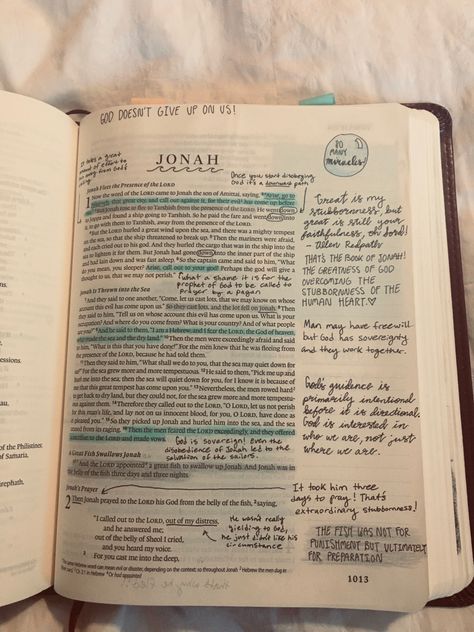 GOD DOESN'T GIVE UP ON US!
JONAH
SO
MANY
miracles!
Once you start disobeying
God it's a downward path
Jonah Flees the Presence of the LORD
Now the word of the LORD came to Jonah the son of Amittai, saying, "Arise, go to
that great city, and call out against it, for their evil has come up before
But Jonah rose to flee to Tarshish from the presence of the LORD. He went down
to Joppa and found a ship going to Tarshish. So he paid the fare and went down into
it, to go with them to Tarshish, away from the presence of the LORD.
But the LORD hurled a great wind upon the sea, and there was a mighty tempest
on the sea, so that the ship threatened to break up. Then the mariners were afraid,
and each cried out to his god. And they hurled the cargo that was in the ship into the
sea to lighten it for them. But Jonah had gone down into the inner part of the ship
and had lain down and was fast asleep. So the captain came and said to him, "What
do you mean, you sleeper? Arise, call out to your god! Perhaps the god will give a
thought to us, that we may not perish."
What a shame it is for the
prophet of God to be called to
prayer by a pagan
Jonah Is Thrown into the Sea
And they said to one another, "Come, let us cast lots, that we may know on whose
account this evil has come upon us." So they cast lots, and the lot fell on Jonah. Then
they said to him, "Tell us on whose account this evil has come upon us. What is your
occupation? And where do you come from? What is your country? And of what people
are you?" And he said to them, "I am a Hebrew, and I fear the LORD, the God of heaven,
who made the sea and the dry land." Then the men were exceedingly afraid and said
to him, "What is this that you have done!" For the men knew that he was fleeing from
the presence of the LORD, because he had told them.
Then they said to him, "What shall we do to you, that the sea may quiet down for
us?" For the sea grew more and more tempestuous. He said to them, "Pick me up and
hurl me into the sea; then the sea will quiet down for you, for I know it is because of
me that this great tempest has come upon you." Nevertheless, the men rowed hard
to get back to dry land, but they could not, for the sea grew more and more tempestu-
ous against them. Therefore they called out to the LORD, "O LORD, let us not perish
for this man's life, and lay not on us innocent blood, for you, O LORD, have done as
it pleased you." So they picked up Jonah and hurled him into the sea, and the sea
ceased from its raging. Then the men feared the LORD exceedingly, and they offered
a sacrifice to the LORD and made vows.
God is sovereign! Even the
disobedience of Jonah led to the
salvation of the sailors.
A Great Fish Swallows Jonah
And the LORD appointed a great fish to swallow up Jonah. And Jonah was in
the belly of the fish three days and three nights.
Jonah's Prayer
2 Then Jonah prayed to the LORD his God from the belly of the fish, saying,
"I called out to the LORD, out of my distress,
and he answered me;
out of the belly of Sheol I cried,
and you heard my voice.
For you cast me into the deep,
He wasn't really
yielding to God,
he just didn't like his
circumstance
Great is my
stubbornness, but
great is still your
faithfulness, oh Lord!
- Allan Redpath
THAT'S THE BOOK OF JONAH!
THE GREATNESS OF GOD
OVERCOMING THE
STUBBORNNESS OF THE
HUMAN HEART.♡
Man may have free will
but God has sovereignty
and they work together.
God's guidance is
primarily intentional
before it is directional.
God is interested in
who we are, not just
where we are.
It took him three
days to pray! That's
extraordinary stubbornness!
THE FISH WAS NOT FOR
PUNISHMENT BUT ULTIMATELY
FOR PREPARATION
1013
the Philistines
of Samaria,